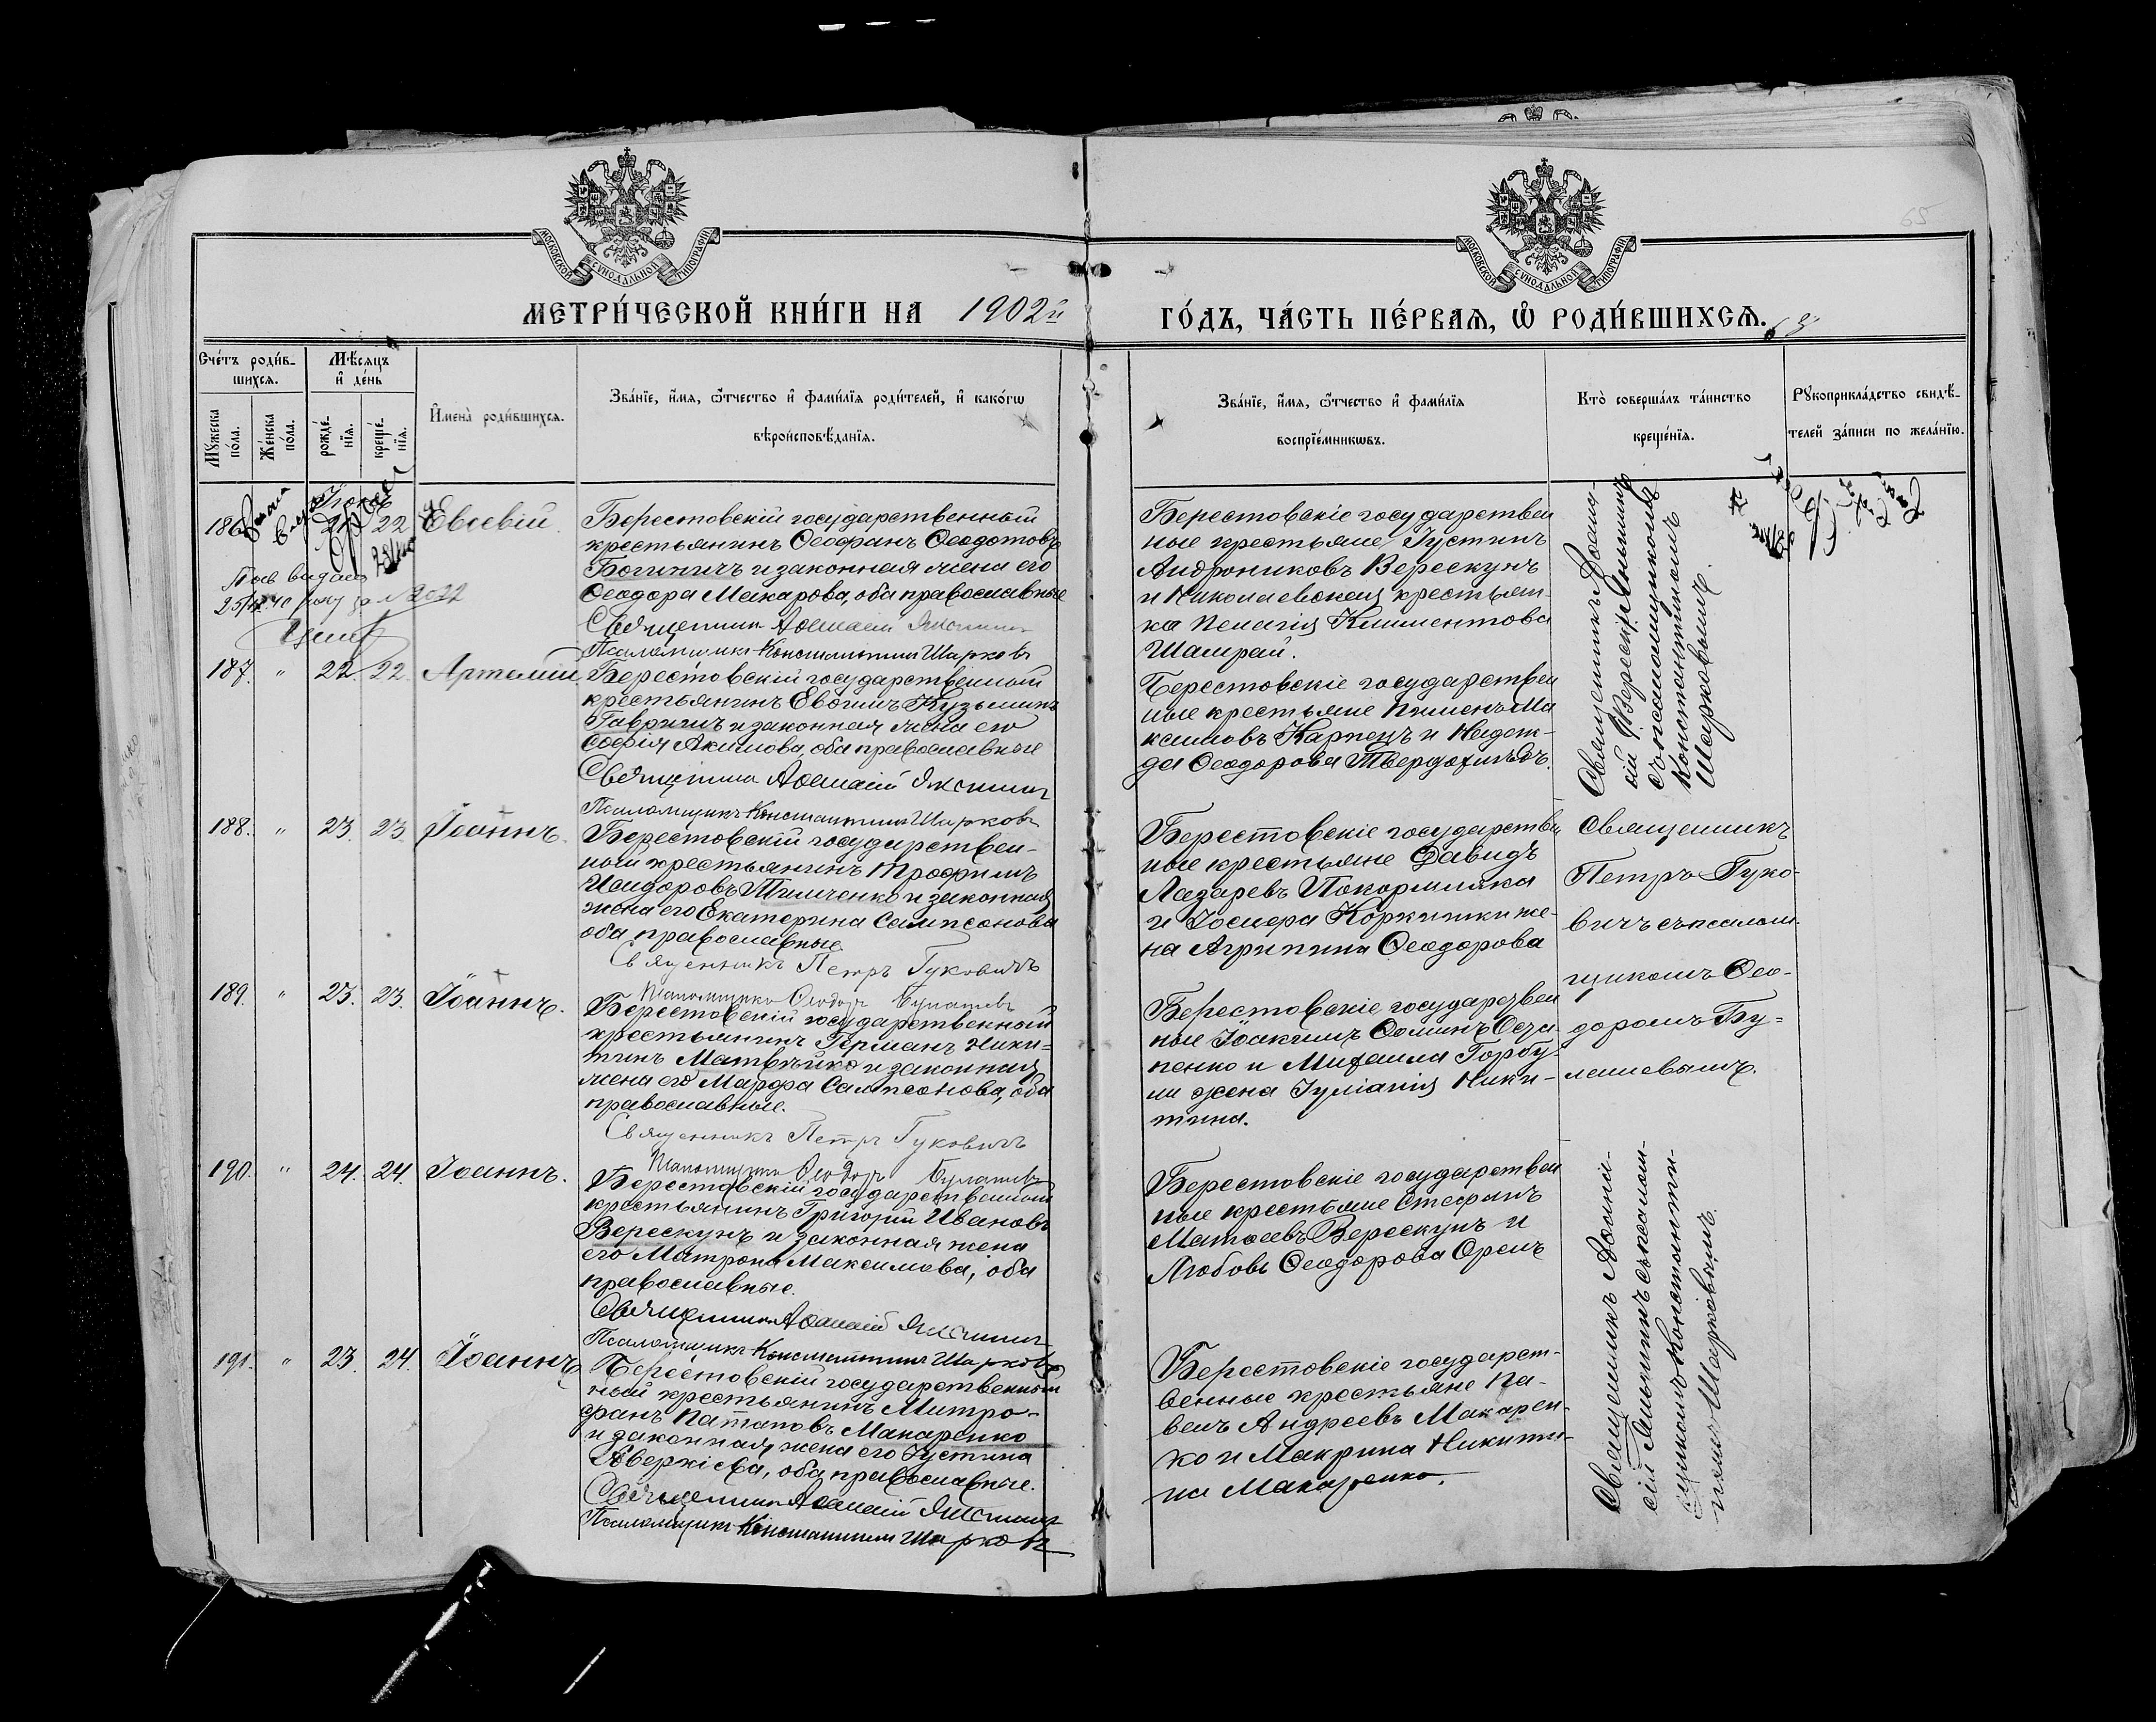 65
МОСКОВСКОЙ СУНОДАЛЬНОЙ ТИПОГРАФІИ
МОСКОВСКОЙ СУНОДАЛЬНОЙ ТИПОГРАФІИ
МЕТРИ́ЧЕСКОЙ КНИ́ГИ НА 1902й
ГО́ДЪ, ЧА́СТЬ ПЕ́РВАЯ, Ѽ РОДИ́ВШИХСЯ.
Сче́тъ роди́в-
шихся.
Мѣ́сяцъ
и҆ де́нь
Мꙋ́жеска по́ла.
Же́нска по́ла.
рожде́-нїя.
креще́-нїя.
И҆мена̀ роди́вшихся.
Зва́нїе, и҆́мя, ѻ҆́тчество и҆ фами́лїя роди́телей, и҆ како́гѡ
вѣроисповѣ́данїя.
Зва́нїе, и҆́мя, ѻ҆́тчество и҆ фами́лїя
воспрїе́мникѡвъ.
Кто̀ соверша́лъ та́инство
креще́нїя.
Рꙋкоприкла́дство свидѣ́-
телей за́писи по жела́нїю.
186 22 Евсевій.
Берестовскій государственный
крестьянинъ Ѳеофанъ Ѳеодотовъ
Богиничъ и законная жена его
Ѳеодора Макарова, оба православные
Священникъ Аѳанасій
Псаломщикъ Константинъ Шарковъ
Берестовскіе государствен
ные крестьяне Іустинъ
Андрониковъ Верескунъ
и Николаевская крестьян-
ка Пелагія Климентова
Шамрай.
Священникъ
Константиномъ
Шарковымъ.
187. " 22. 22. Артемій
Берестовскій государственный
крестьянинъ Евѳимъ Кузьминъ
Гавришъ и законная жена его
Софія Акимова, оба православные
Священникъ Аѳанасій
Псаломщикъ Константинъ Шарковъ
Берестовскіе государствен
ные крестьяне Пименъ Ма
ксимовъ Карпецъ и Надеж-
да Ѳеодорова Твердохлѣбъ.
188. " 23. 23. Іоаннъ.
Берестовскій государствен-
ный крестьянинъ Трофимъ
Исидоровъ Тимченко и законная
жена его Екатерина Сампсонова
оба православные.
Священникъ Петръ Гуковичъ
Берестовскіе государствен
ные крестьяне Давидъ
Лазаревъ Покормляка
и Іосифа Коркишки же-
на Агрипина Ѳеодорова
Священникъ
Петръ Гуко-
вичъ съ псалом-
щикомъ Ѳео-
доромъ Бу-
лашевымъ.
189. " 23. 23. Іоаннъ.
Берестовскій государственный
крестьянинъ Германъ Ники-
тинъ Матвѣйко и законная
жена его Марфа Сампсонова, оба
православные.
Священникъ Петръ Гуковичъ
Берестовскіе государствен
ные Іоакимъ Ѳоминъ
и Михаила Горбу-
ли жена Іуліанія Ники-
тина.
190. " 24. 24. Іоаннъ.
Берестовскій государственный
крестьянинъ Григорій Ивановъ
Верескунъ и законная жена
его Матрона Максимова, оба
православные.
Священникъ Аѳанасій
Псаломщикъ Константинъ Шарковъ
Берестовскіе государствен
ные крестьяне Стефанъ
Матѳеевъ Верескунъ и
Любовь Ѳеодорова Орелъ
Священникъ Аѳана-
сій съ псалом-
щикомъ Константи-
номъ Шарковымъ.
191. " 23. 24. Іоаннъ
Берестовскій государствен
ный крестьянинъ Митро-
фанъ Патаповъ Макаренко
и законная жена его Іустина
Аверкіева, оба православные.
Священникъ Аѳанасій
Псаломщикъ Константинъ Шарковъ
Берестовскіе государст-
венные крестьяне Па-
велъ Андреевъ Макарен-
ко и Макрина Никити-
на Макаренко.